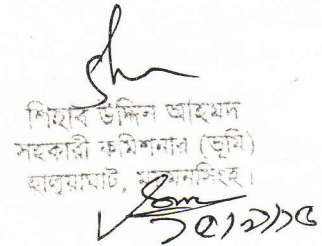 শিহাব উদ্দিন আহমদ
সহকারী কমিশনার (ভূমি)
হালুয়াঘাট, ময়মনসিংহ।